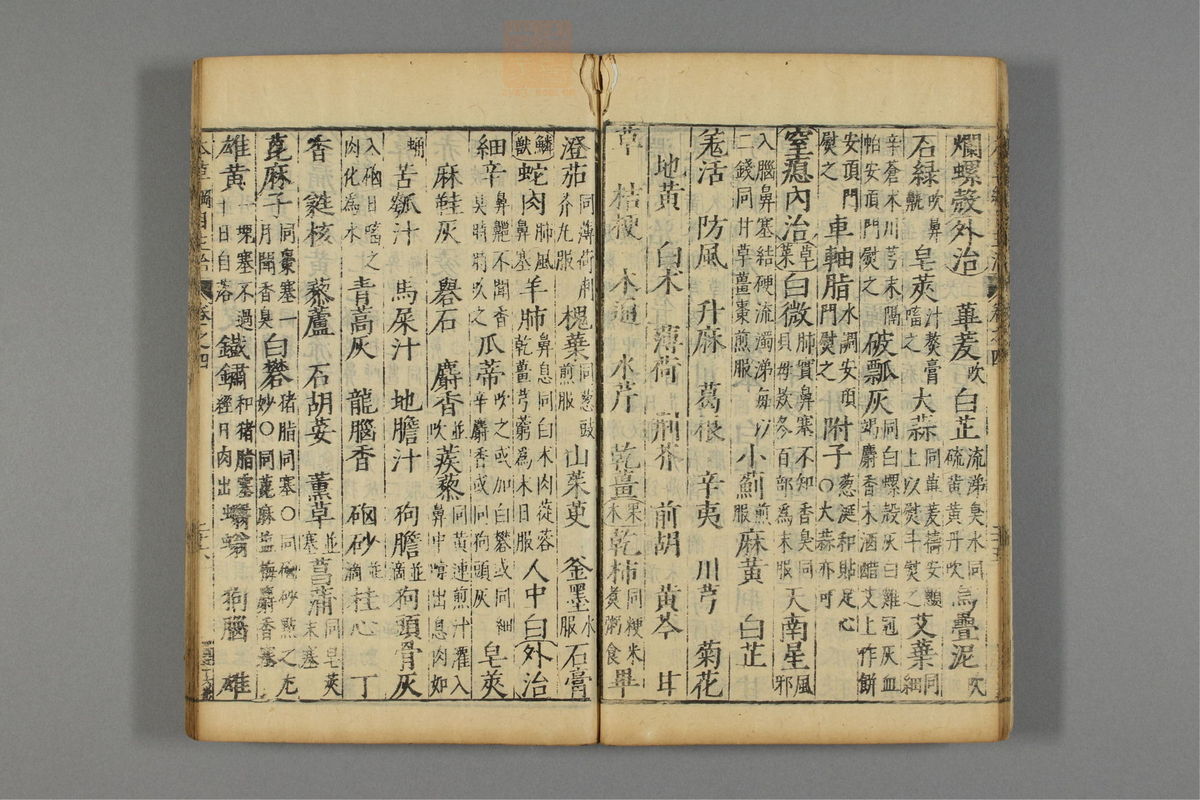 爛螺殼外治 蓽茇吹 白芷流涕臭水同硫黄黄丹吹 烏疊泥吹
石綠吹鼻皰 皂莢汁熬膏㗜之 大蒜同蓽茇擣安顖上以熨斗熨之 艾葉同細
辛蒼朮川芎末隔帕安頂門熨之 破瓢灰同白螺殼灰白雞冠灰血竭麝香末酒醋艾上作餅
安頂門熨之 車軸脂水調安頂門熨之 附子葱涎和貼足心○大蒜亦可
窒瘜內治 草菜 白微肺實鼻塞不知香臭同貝母款冬百部爲末服 天南星風邪
入腦鼻塞結硬流濁涕每以二錢同甘草薑棗煎服 小薊煎服 麻黄 白芷
羌活 防風 升麻 葛根 辛夷 川芎 菊花
地黄 白朮 薄荷 荆芥 前胡 黄芩 甘
草 桔梗 木通 水芹 乾薑 果木 乾柿同粳米煮粥食 畢
澄茄同薄荷荆芥丸服 槐葉同葱豉煎服 山茱萸 釜墨水服 石膏
鱗獸 蛇肉肺風鼻塞 羊肺鼻息同白朮肉蓯蓉乾薑芎藭爲末日服 人中白 外治
細辛鼻齆不聞香臭時時吹之 瓜蒂吹之或加白礬或同細辛麝香或同狗頭灰 皂莢
麻鞋灰 礜石 麝香並吹 蒺藜同黄連煎汁灌入鼻中嚏出息肉如
蛹 苦瓠汁 馬屎汁 地膽汁 狗膽並滴 狗頭骨灰
入硇日㗜之肉化爲水 青蒿灰 龍腦香 硇砂並滴 桂心 丁
香 蕤核 藜蘆 石胡荽 薰草並塞 菖蒲同皂莢末塞
蓖麻子同棗塞一月聞香臭 白礬猪脂同塞○同硇砂點之尤妙○同蓖麻鹽梅麝香塞
雄黄一塊塞不過十日自落 鐵鏽和猪脂塞經月肉出 蝟 狗腦 雄
本草綱目主治 卷之四